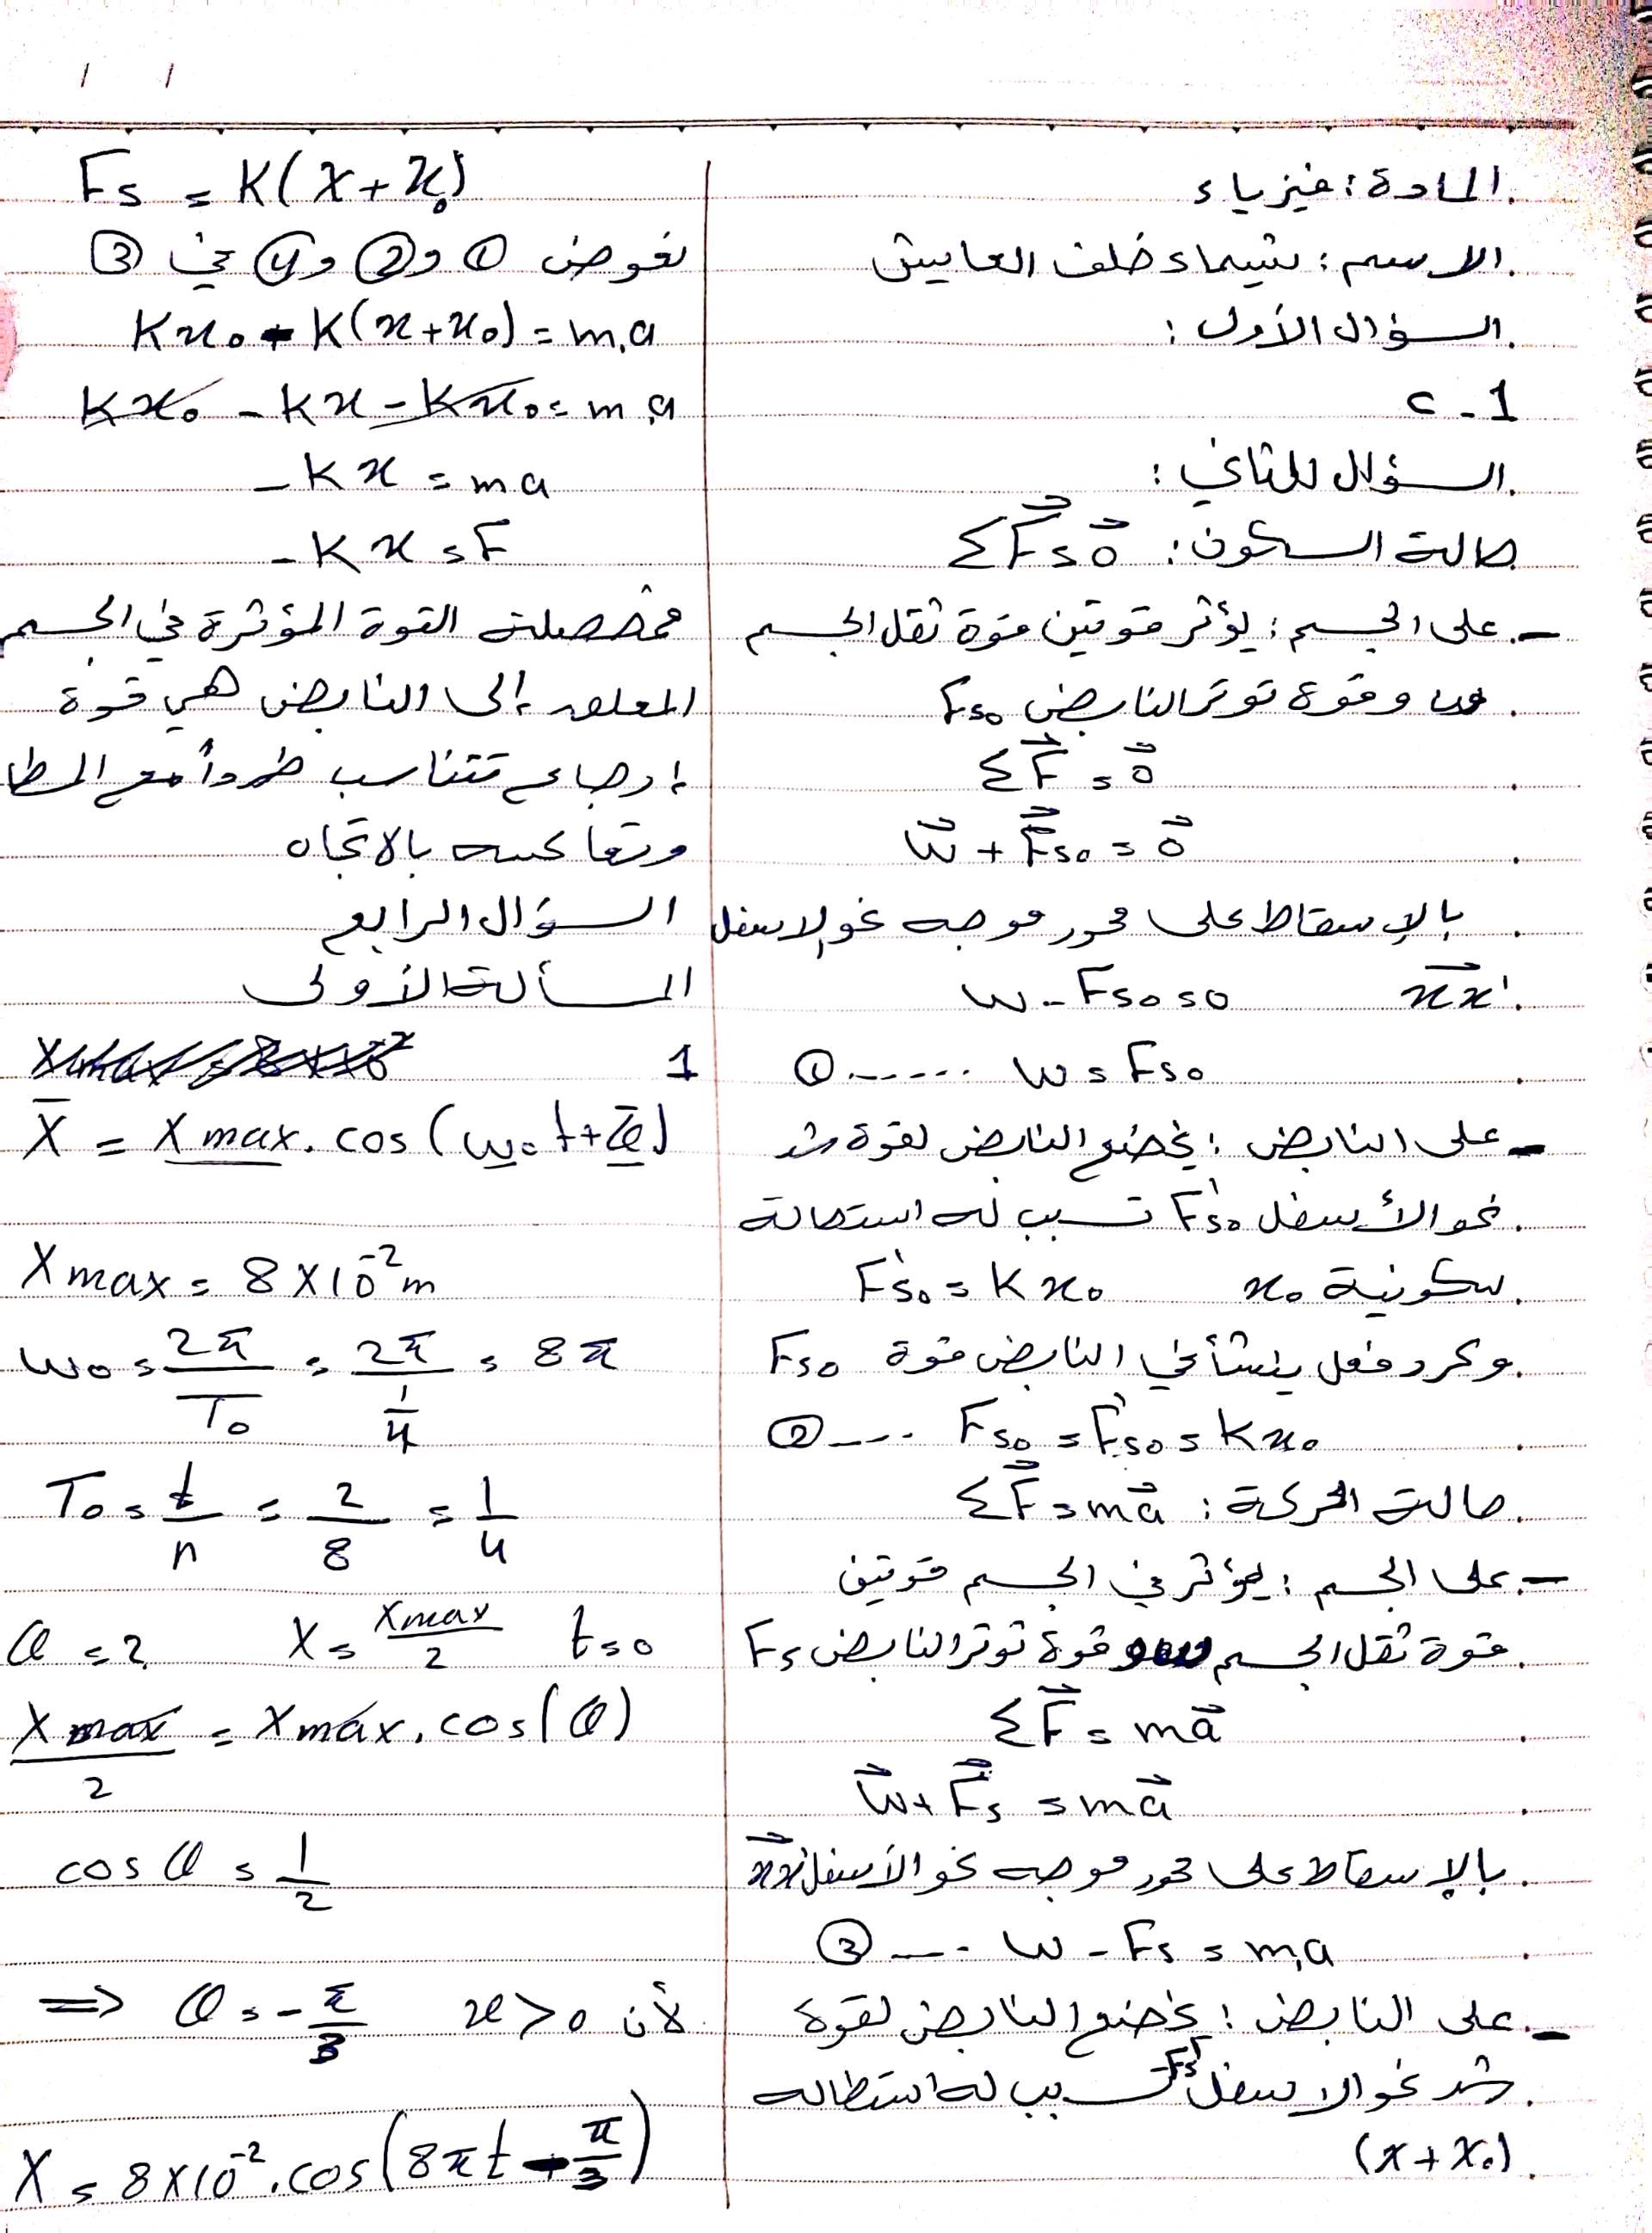 المادة : فيزياء
الاسم : شيماء خلف العايش
السؤال الأول :
1 - c
السؤال الثاني :
حالة السكون : ΣF⃗ = 0⃗
- على الجسم : يؤثر قوتين قوة ثقل الجسم
و قوة توتر النابض Fs₀
ΣF⃗ = 0⃗
W⃗ + F⃗s₀ = 0⃗
بالإسقاط على محور موجه نحو الاسفل
xx'⃗ W - Fs₀ = 0
W = Fs₀ ...... ①
- على النابض : يخضع النابض لقوة شد
نحو الأسفل F's₀ تسبب له استطالة
سكونية x₀ F's₀ = K x₀
وكرد فعل ينشأ في النابض قوة Fs₀
Fs₀ = F's₀ = K x₀ .... ②
حالة الحركة : ΣF⃗ = ma⃗
- على الجسم : يؤثر في الجسم قوتين
قوة ثقل الجسم و قوة توتر النابض Fs
ΣF⃗ = ma⃗
W⃗ + F⃗s = ma⃗
بالإسقاط على محور موجه نحو الأسفل xx'⃗
W - Fs = m.a .... ③
- على النابض : يخضع النابض لقوة
شد نحو الاسفل F's تسبب له استطاله
(x + x₀)
Fs = K(x + x₀)
نعوض ① و ② و ④ في ③
Kx₀ - K(x + x₀) = m.a
Kx₀ - Kx - Kx₀ = m.a
- K x = ma
- K x = F
محصلة القوة المؤثرة في الجسم
المعلق إلى النابض هي قوة
إرجاع تتناسب طرداً مع المطا
وتعاكسه بالاتجاه
السؤال الرابع
المسألة الأولى
1
X̄ = Xmax . cos(ω₀t + φ̄)
Xmax = 8 × 10⁻² m
ω₀ = 2π/T₀ = 2π/(1/4) = 8π
T₀ = t/n = 2/8 = 1/4
φ = ? X = Xmax/2 t = 0
Xmax/2 = Xmax . cos(φ)
cos φ = 1/2
⇒ φ = - π/3 لأن x > 0
X = 8 × 10⁻² . cos(8πt - π/3)